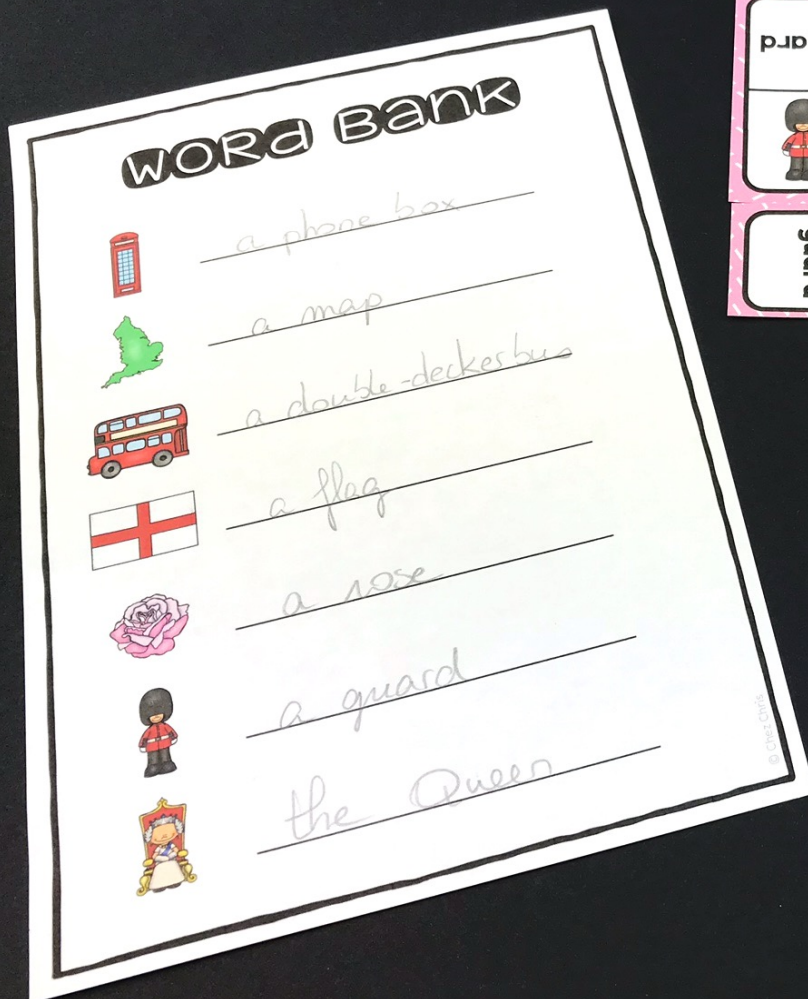 WORD BANK
a phone box
a map
a double-decker bus
a flag
a rose
a guard
the Queen
© Chez Chris